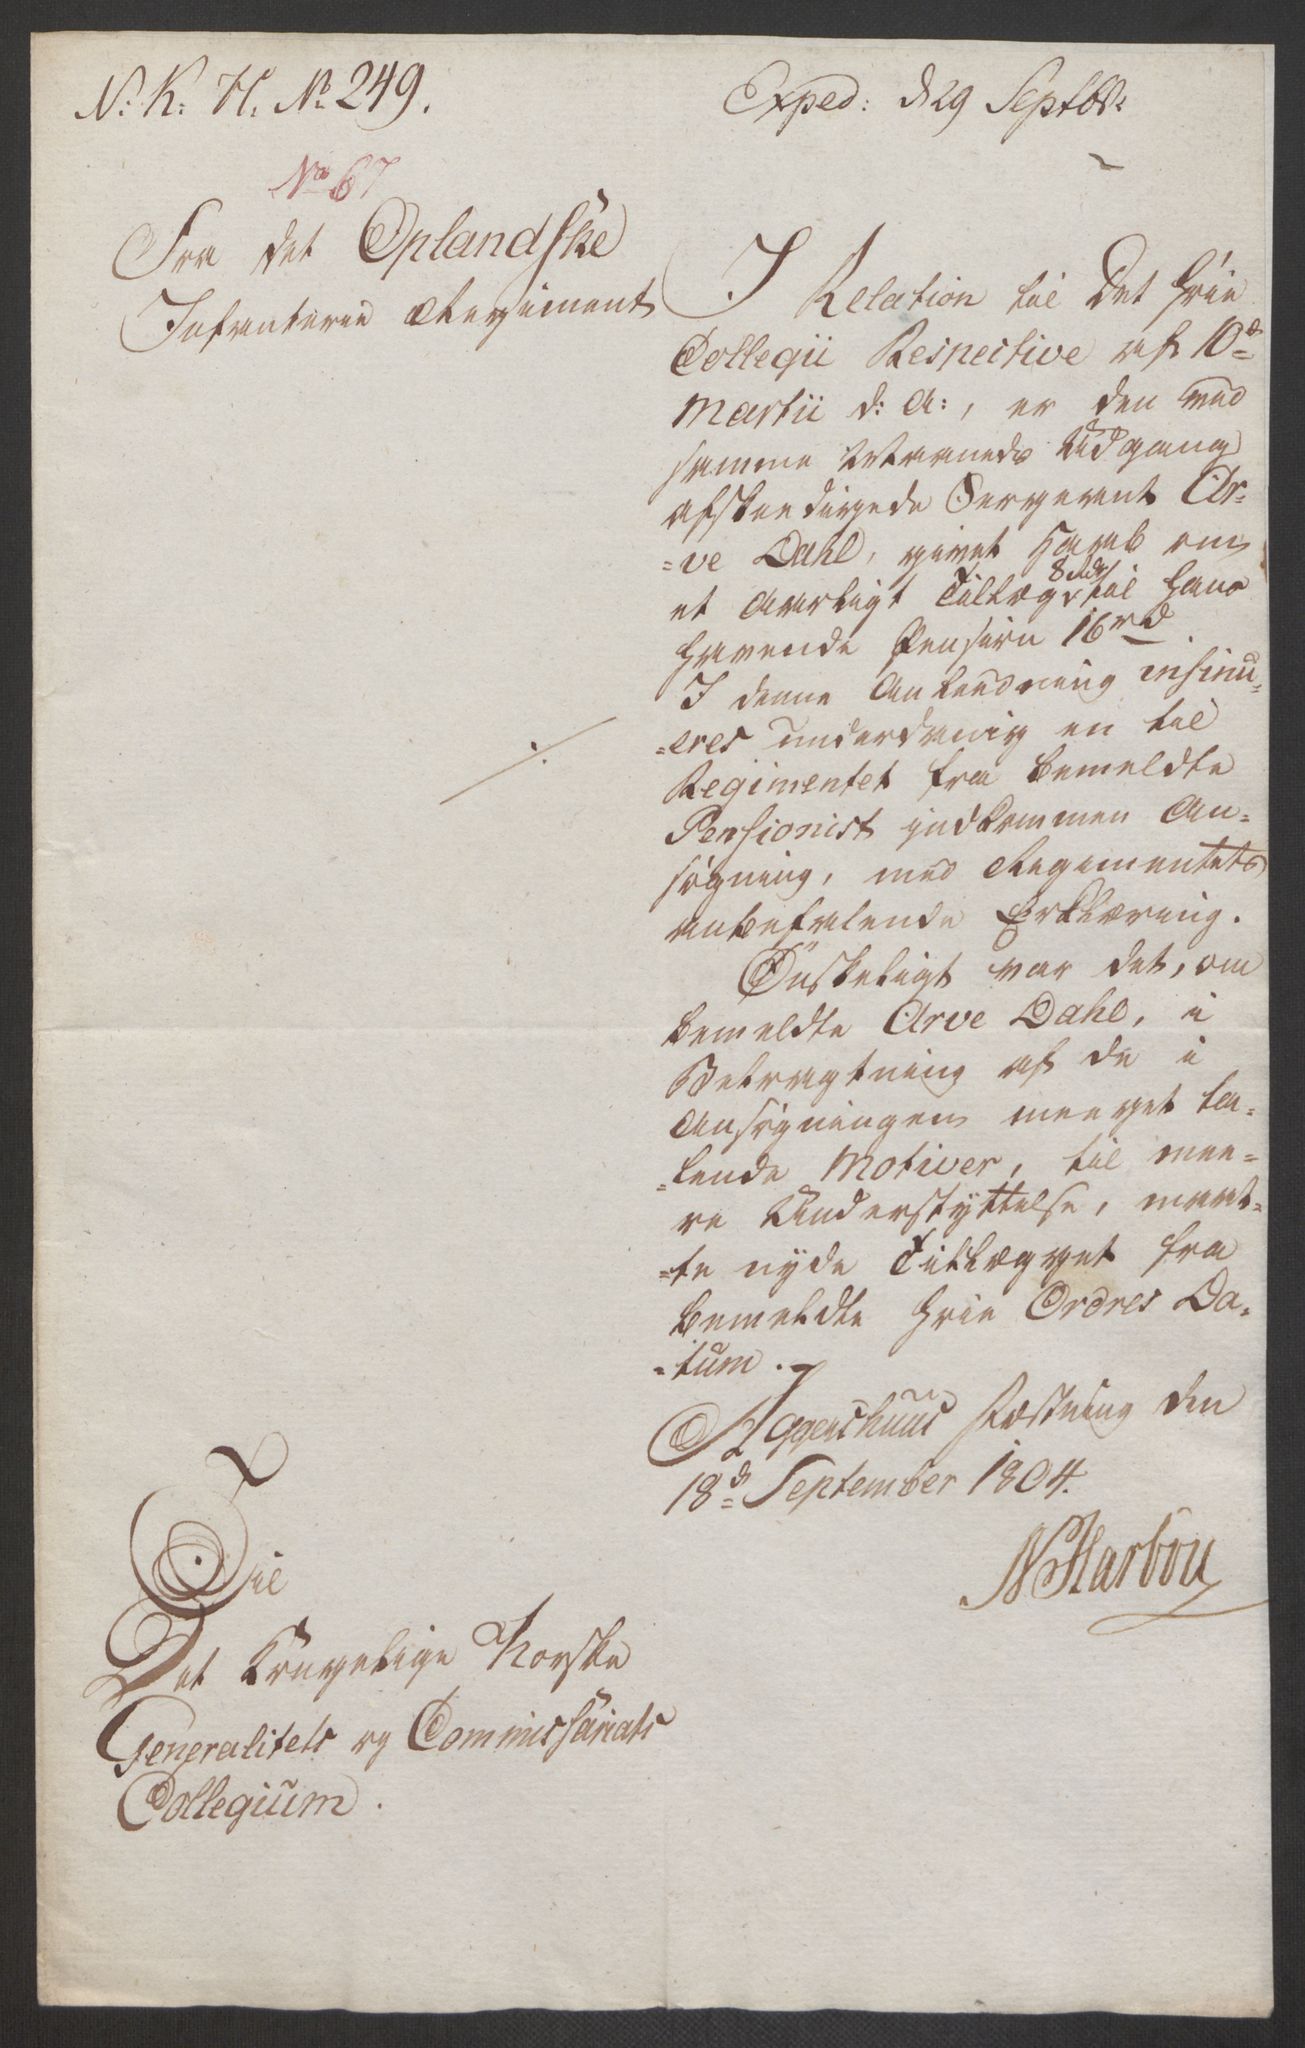 N: K: H. No 249.
Exped: d 29 Septbr:
No 67
Fra det Oplandske
Infanterie Regiment
I Relation til Det høie
Collegii Respective af 10de
Martii d: A:, er den med
samme Maaneds Udgang
afskeedigede Sergeant Ar-
=ve Dahl, givet Haab om
et aarligt Tillæg 8 Rdr til hans
havende Pension 16rd
I denne Anledning insinu-
=eres underdanig en til
Regimentet fra bemeldte
Pensionist indkommen An-
søgning, med Regimentets
anbefalende Erklæring.
Önskeligt var det, om
bemeldte Arve Dahl, i
Betragtning af de i
Ansøgningen meeget ta-
=lende Motiver, til mee-
re Understyttelse, maat-
=te nyde Tillægget fra
bemeldte høie Ordres Da-
=tum.
Aggershuus Fæstning den
18d September 1804.
N Harbou
Til
Det Kongelige Norske
Generalitets og Commissariats
Collegium.